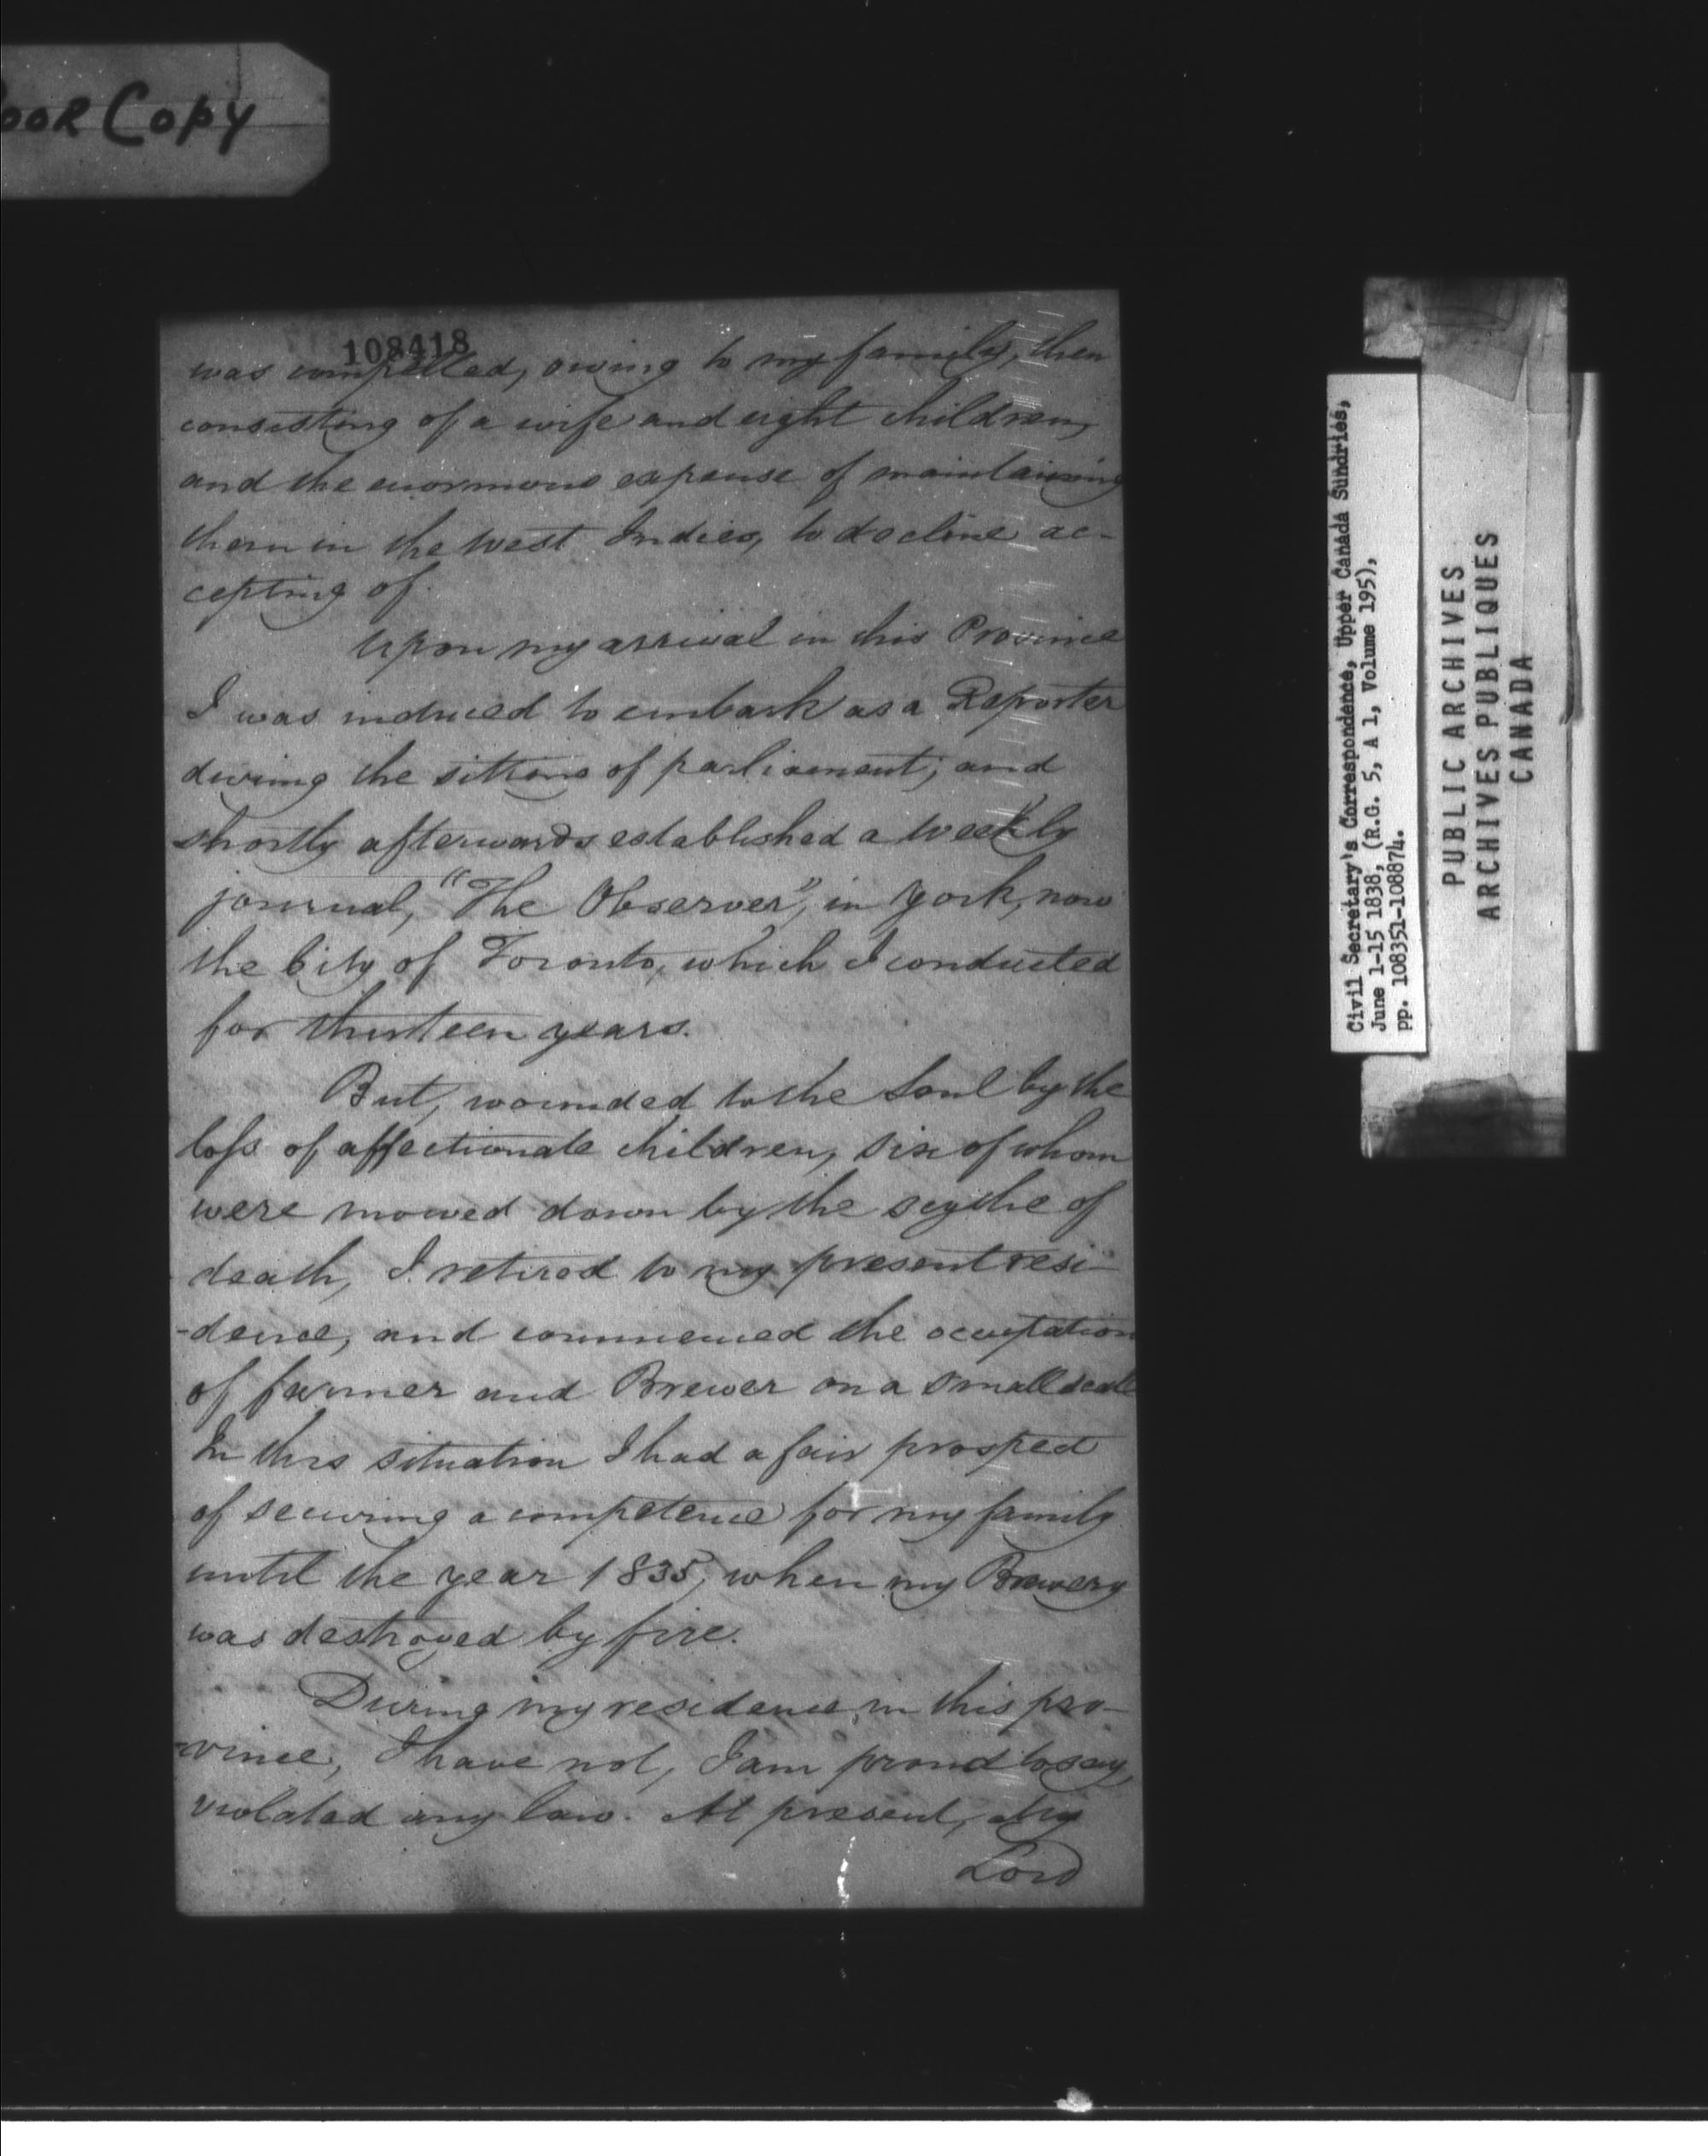 oor Copy
108418
was compelled, owing to my family, then
consisting of a wife and eight children,
and the enormous expense of maintaining
them in the West Indies, to decline ac-
cepting of.
Upon my arrival in this Province
I was induced to embark as a Reporter
during the sittings of parliament; and
shortly afterwards established a weekly
journal, "The Observer", in York, now
the City of Toronto, which I conducted
for thirteen years.
But, wounded to the soul by the
loss of affectionate children, six of whom
were mowed down by the scythe of
death, I retired to my present resi-
-dence, and commenced the occupation
of farmer and Brewer on a small scale
In this situation I had a fair prospect
of securing a competence for my family
until the year 1835, when my Brewery
was destroyed by fire.
During my residence in this pro-
-vince, I have not, I am proud to say,
violated any law. At present, My
Lord
Civil Secretary's Correspondence, Upper Canada Sundries,
June 1-15 1838, (R.G. 5, A 1, Volume 195),
pp. 108351-108874.
PUBLIC ARCHIVES
ARCHIVES PUBLIQUES
CANADA